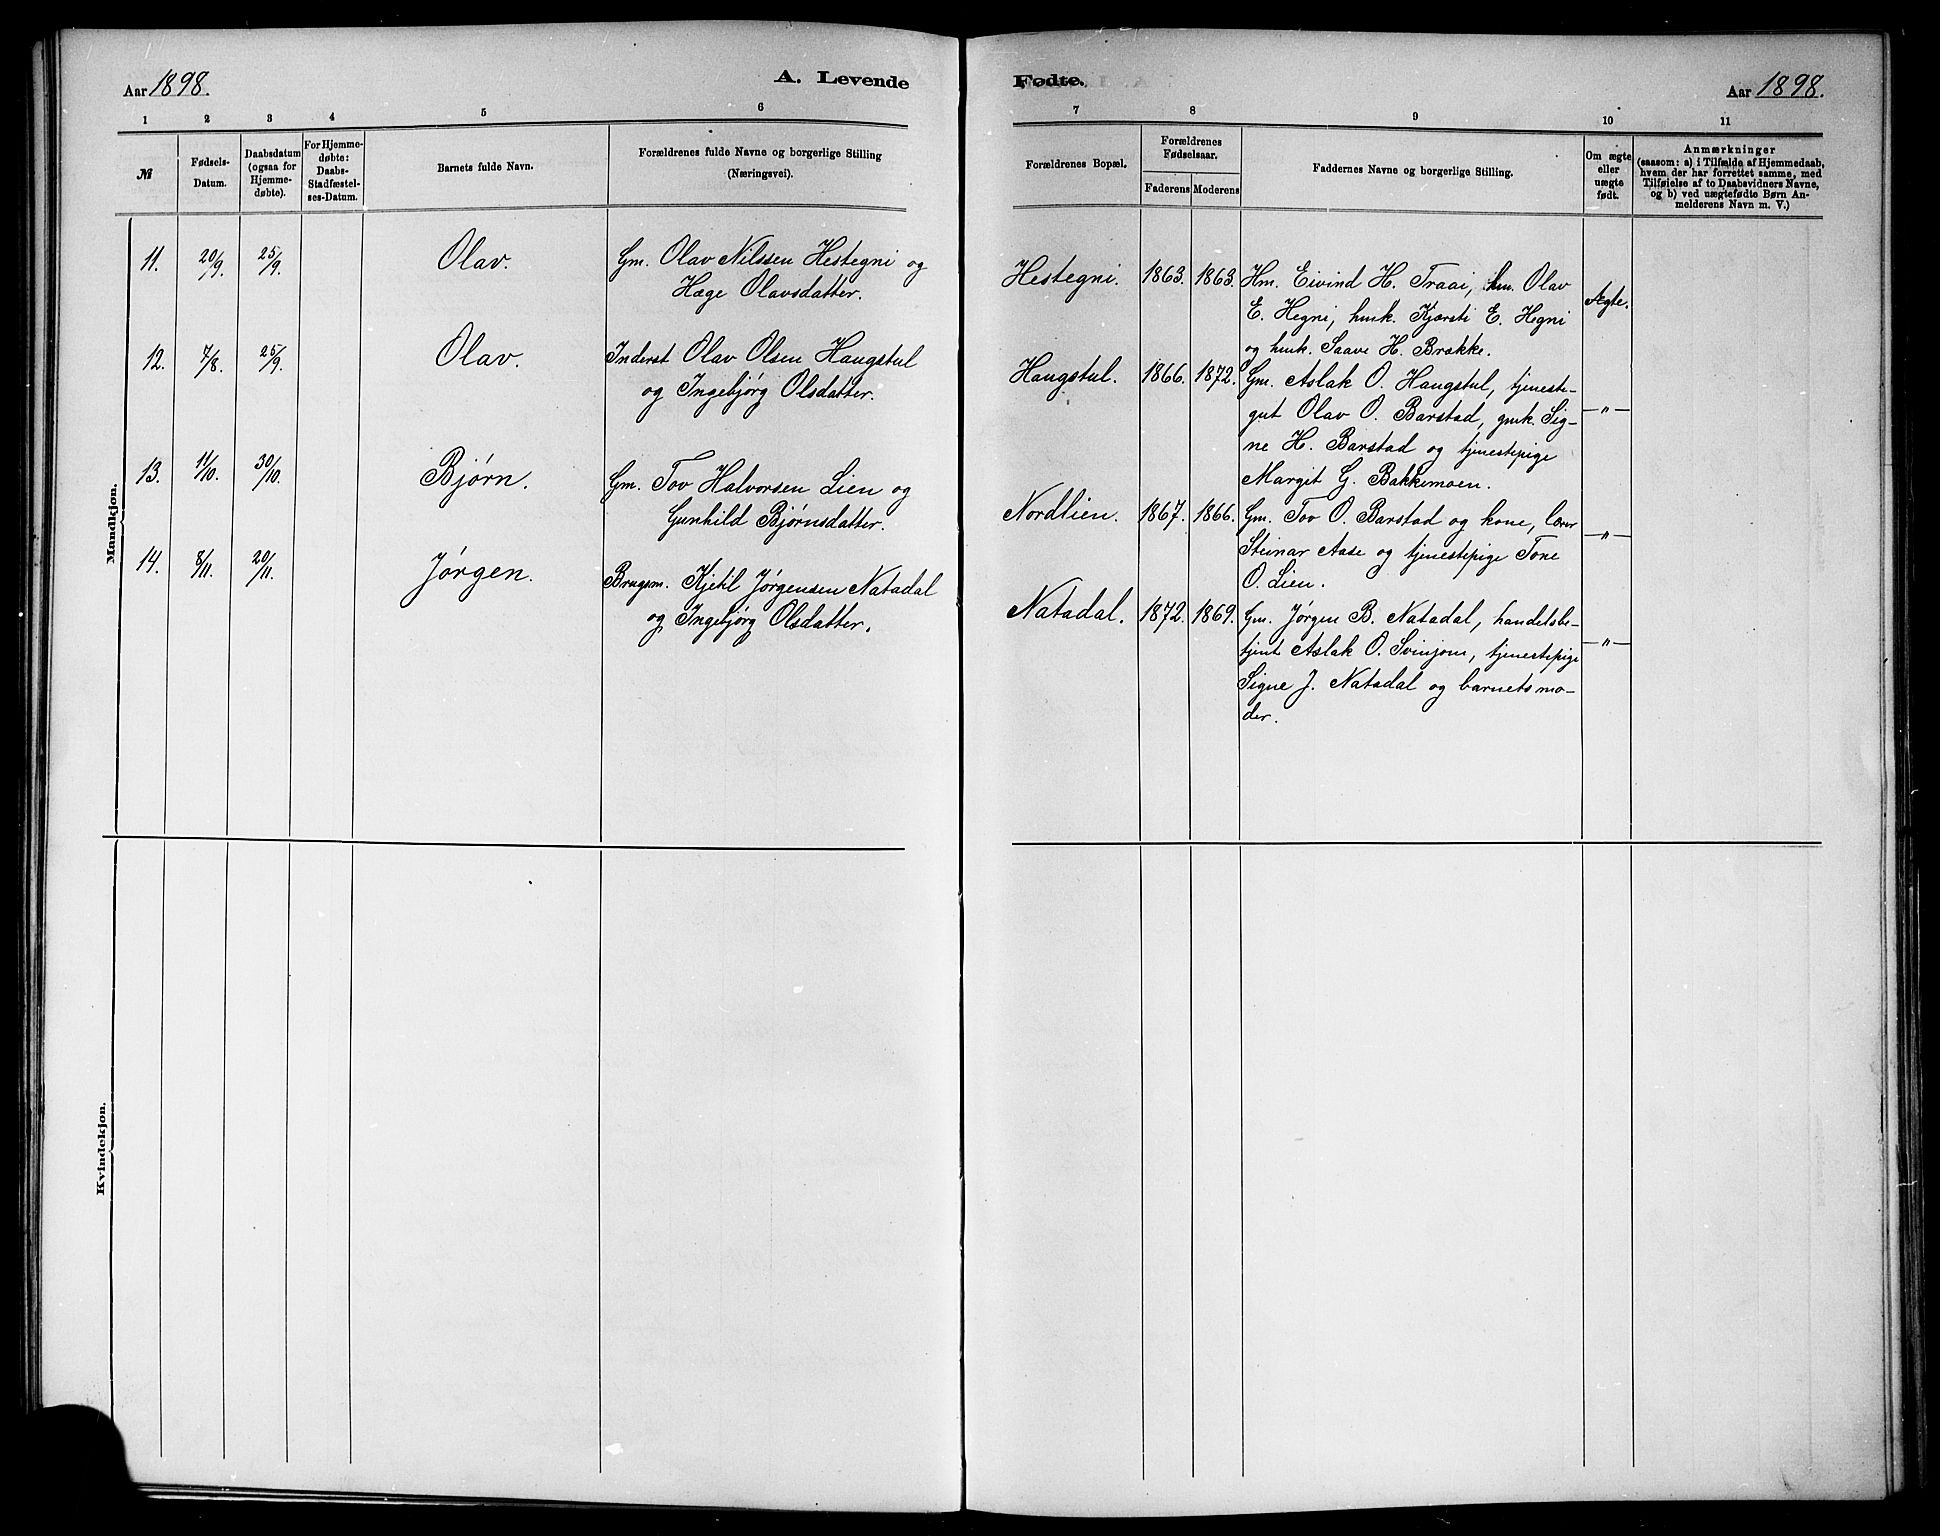 Aar 1898.
A. Levende
1 2 3 4 5 6
№
Fødsels-
Datum.
Daabsdatum
(ogsaa for
Hjemme-
døbte).
For Hjemme-
døbte:
Daabs-
Stadfæstel-
ses-Datum.
Barnets fulde Navn.
Forældrenes fulde Navne og borgerlige Stilling
(Næringsvei).
Mandkjøn.
11. 20/9. 25/9. Olav. Gm. Olav Nilssen Hestegni og
Hæge Olavsdatter.
12. 7/8. 25/9. Olav. Inderst Olav Olsen Haugstul
og Ingebjørg Olsdatter.
13. 11/10. 30/10. Bjørn. Gm. Tov Halvorsen Lien og
Gunhild Bjørnsdatter.
14. 8/11. 20/11. Jørgen. Brugsm. Kjetil Jørgensen Natadal
og Ingebjørg Olsdatter.
Kvindekjøn.
Fødte.
Aar 1898.
7 8 9 10 11
Forældrenes Bopæl.
Forældrenes
Fødselsaar.
Faderens Moderens
Faddernes Navne og borgerlige Stilling.
Om ægte
eller
uægte
født.
Anmærkninger
(saasom: a) i Tilfælde af Hjemmedaab,
hvem der har forrettet samme, med
Tilføielse af to Daabsvidners Navne,
og b) ved uægtefødte Børn An-
melderens Navn m. V.)
Hestegni. 1863. 1863. Hm. Eivind H. Traai, hm. Olav
E. Hegni, hmk. Kjærsti E. Hegni
og hmk. Saave H. Brække.
Ægte.
Haugstul. 1866. 1872. Gm. Aslak O. Haugstul, tjeneste-
gut Olav O. Barstad, gmk. Sig-
ne H. Barstad og tjenestepige
Margit G. Bakkemoen.
—"—
Nordlien. 1867. 1866. Gm. Tov O. Barstad og kone, lærer
Steinar Aase og tjenestepige Tone
O. Lien.
—"—
Natadal. 1872. 1869. Gm. Jørgen B. Natadal, handelsbe-
tjent Aslak O. Svinjom, tjenestepige
Signe J. Natadal og barnets mo-
der.
—"—